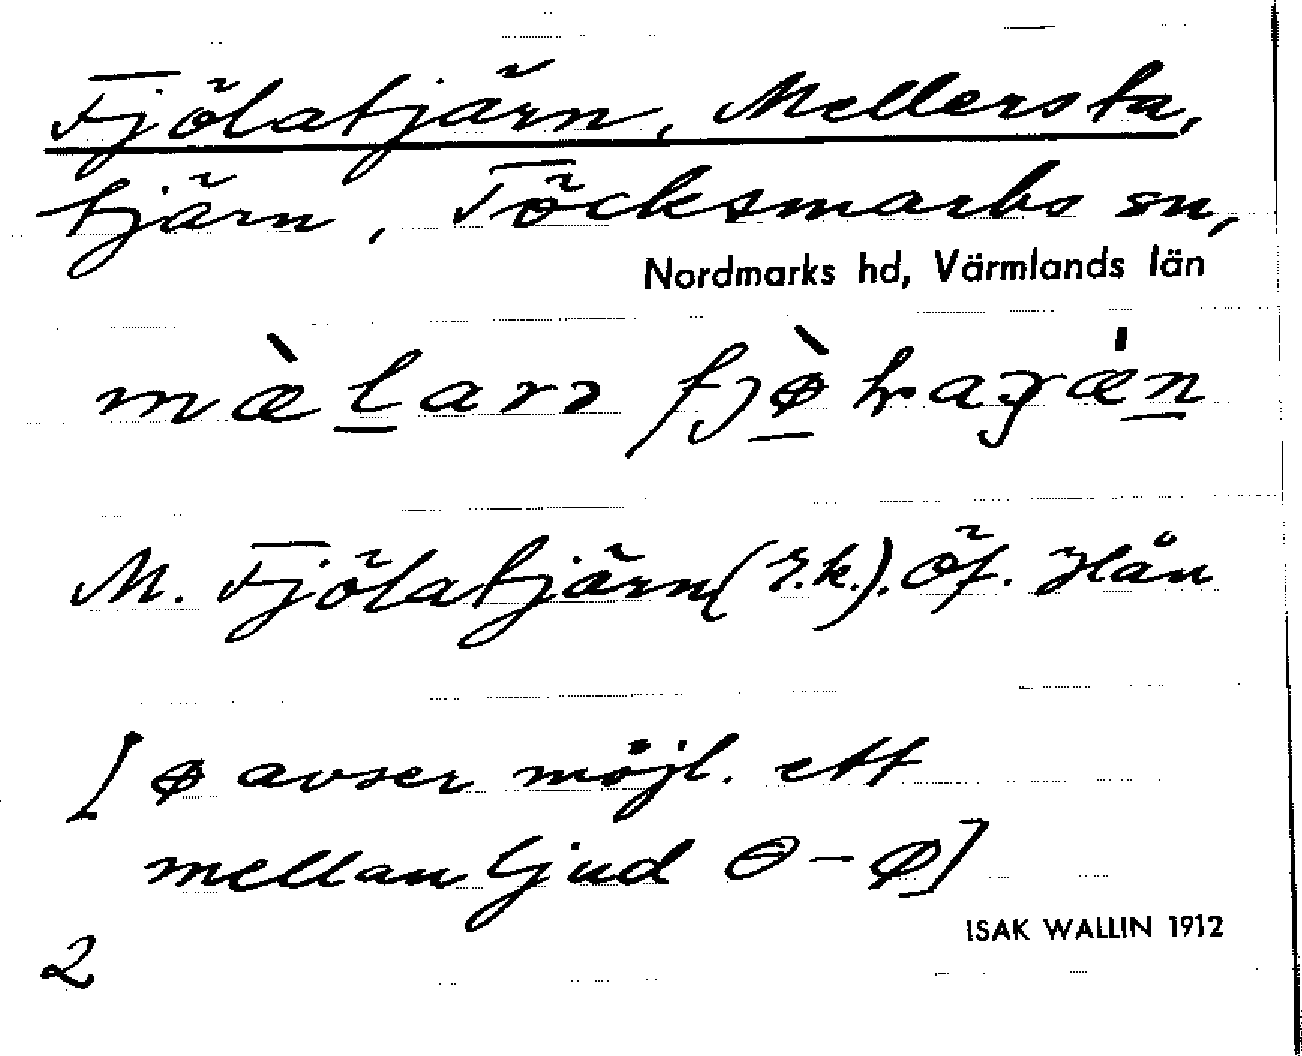 Fjölatjärn, Mellersta,
tjärn, Töcksmarks sn,
Nordmarks hd, Värmlands län
M. Fjölatjärn (E.k.). Öf. Hån
[ø avser möjl. ett
mellanljud ɵ–ø]
ISAK WALLIN 1912
2